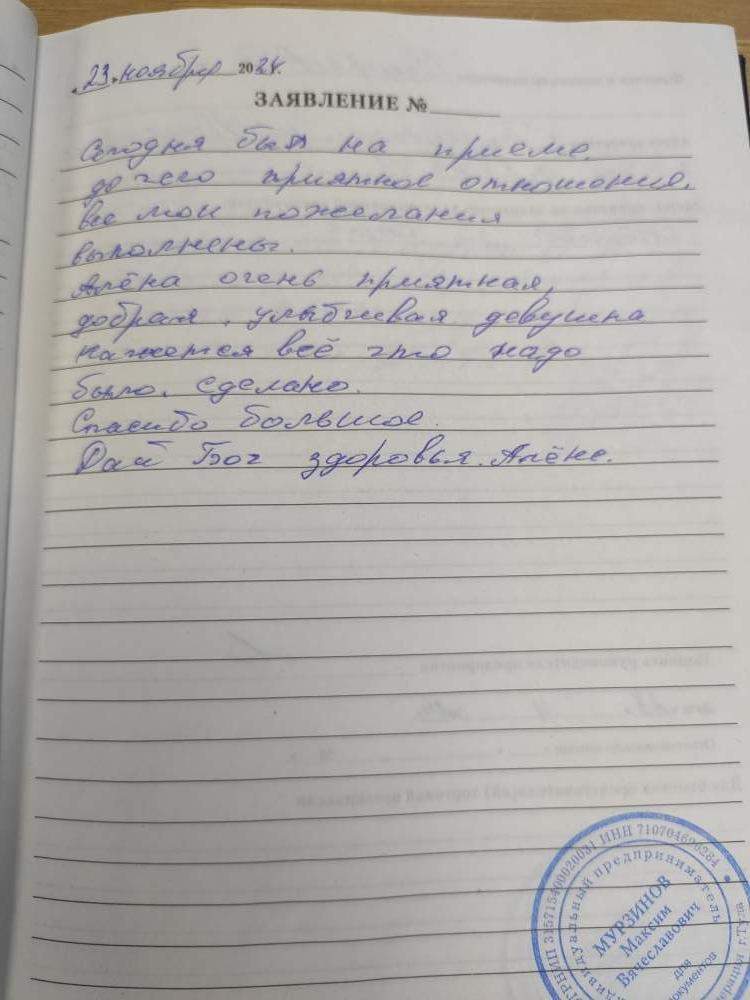 23 ноября 2024г.
ЗАЯВЛЕНИЕ №
Сегодня был на приеме.
до чего приятное отношение,
все мои пожелания
выполнены.
Алёна очень приятная,
добрая, улыбчивая девушка
кажется всё что надо
было, сделано.
Спасибо большое.
Дай Бог здоровья. Алёне.
ИНН 710704606264
индивидуальный предприниматель
МУРЗИНОВ
Максим
Вячеславович
для
документов